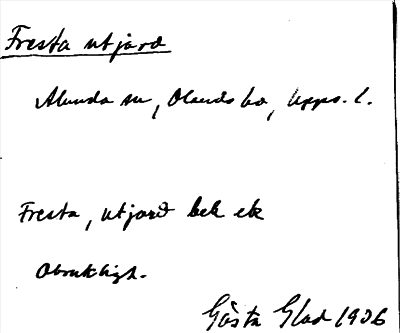 Fresta utjord
Alunda sn, Olands hd, Upps. l.
Fresta, utjord bek ek
Obrukligt.
Gösta Glad 1936